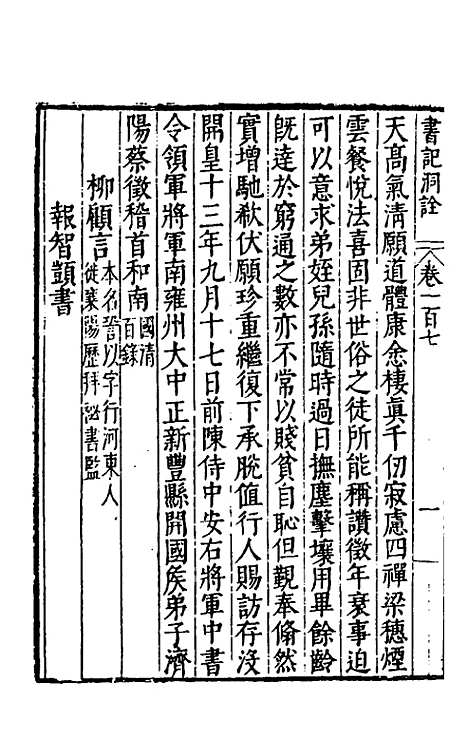 書記洞詮 卷一百七 一
天高氣清願道體康悆棲眞千仞寂慮四禪梁穗煙
雲餐悅法喜固非世俗之徒所能稱讚徵年衰事迫
可以意求弟姪兒孫隨時過日撫塵擊壤用畢餘齡
旣達於窮通之數亦不常以賤貧自恥但覲奉翛然
實增馳欷伏願珍重繼復下承脫値行人賜訪存沒
開皇十三年九月十七日前陳侍中安右將軍中書
令領軍將軍南雍州大中正新豐縣開國矦弟子濟
陽蔡徵稽首和南國清
百錄
柳顧言本名䛒以字行河東人
徙襄陽歷拜祕書監
報智顗書